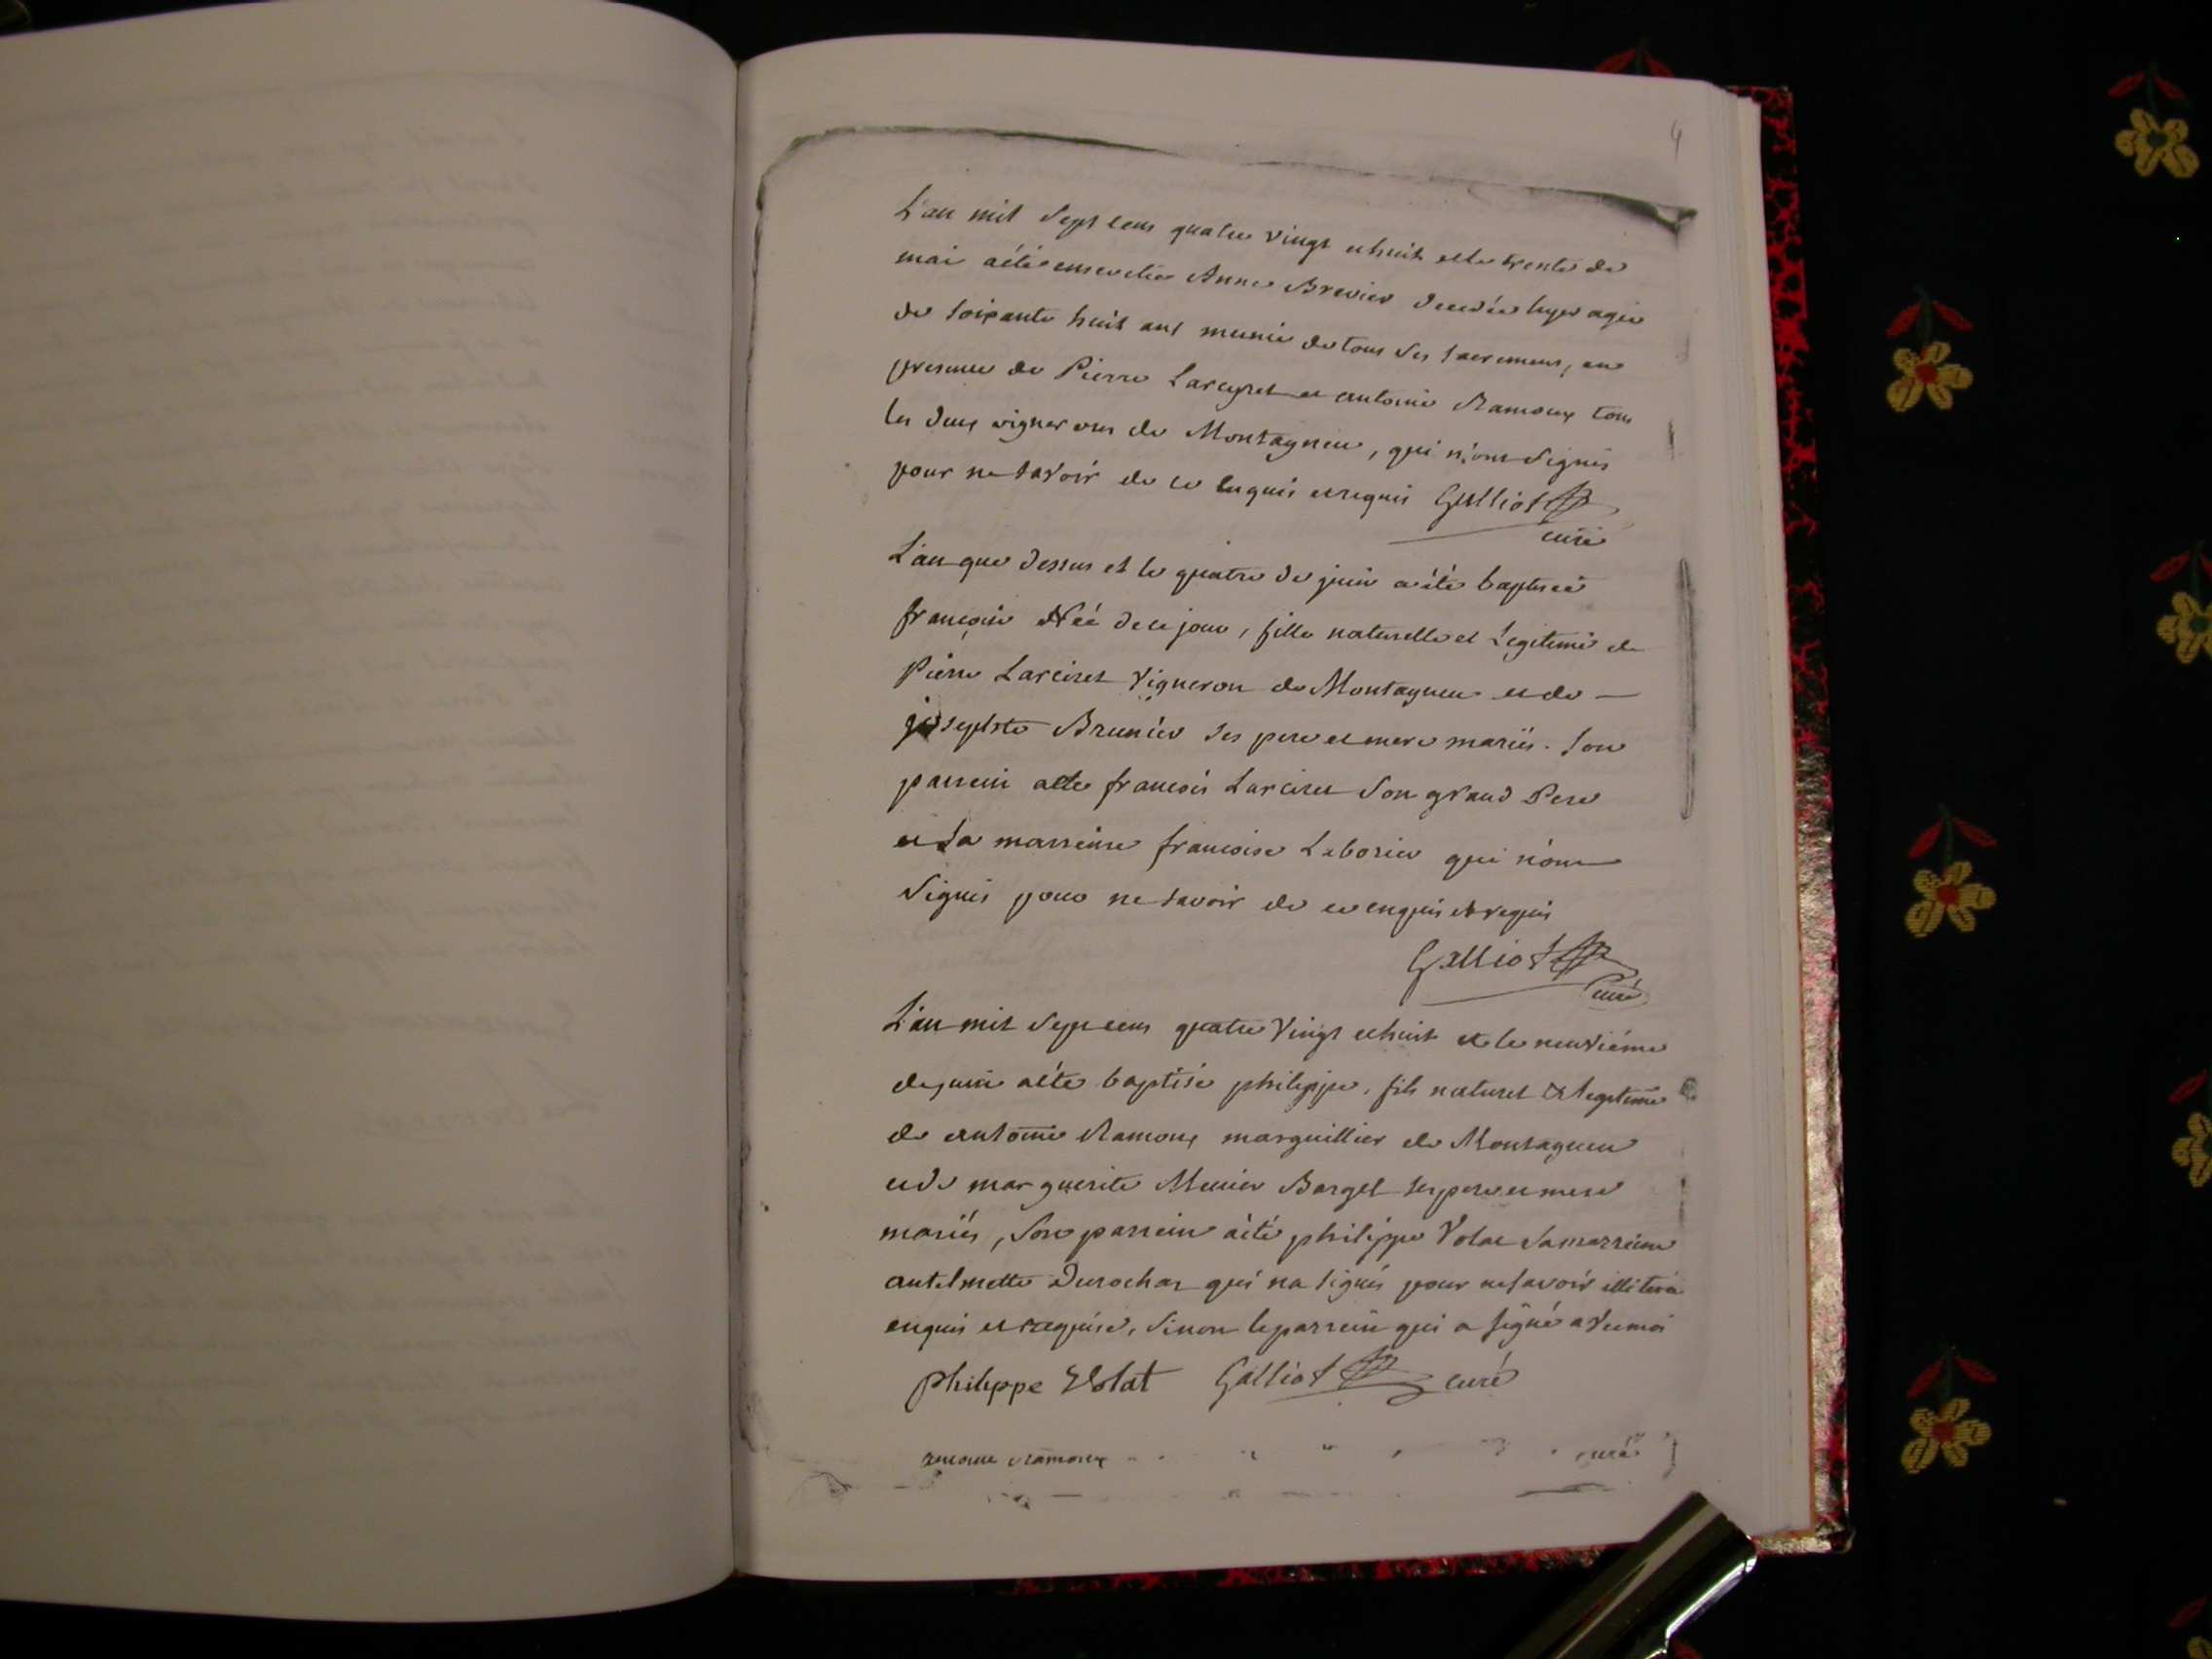 4
L'an mil sept cens quatre vingt et huit et le trente de
mai a été ensevelie Anne Brevier décédée hyer agée
de soixante huit ans munie de tous ses sacremens, en
presence de Pierre Larcyret et antoine Ramoux tous
les deux vignerons de Montagneu, qui n'ont signés
pour ne savoir de ce enquis et requis Galliot
curé
L'an que dessus et le quatre de juin a été baptisée
françoise Née de ce jour, fille naturelle et Legitime de
Pierre Larciret vigneron de Montagneu et de
josephte Brunier ses pere et mere mariés. son
parrein a été françois Larciret son grand Pere
et sa marreine francoise Laborier qui n'ont
signés pour ne savoir de ce enquis et requis
Galliot
curé
L'an mil sept cens quatre vingt et huit et le neuvième
de juin a été baptisé philippe, fils naturel et legitime
de antoine Ramoux marguillier de Montagneu
et de marguerite Meunier Barget ses pere et mere
mariés, son parrein a été philippe Volat sa marreine
antelmette Durochat qui n'a signés pour ne savoir illiterée
enquis et requise, sinon le parrein qui a signé avec moi
philippe Volat Galliot curé
Ramoux curé